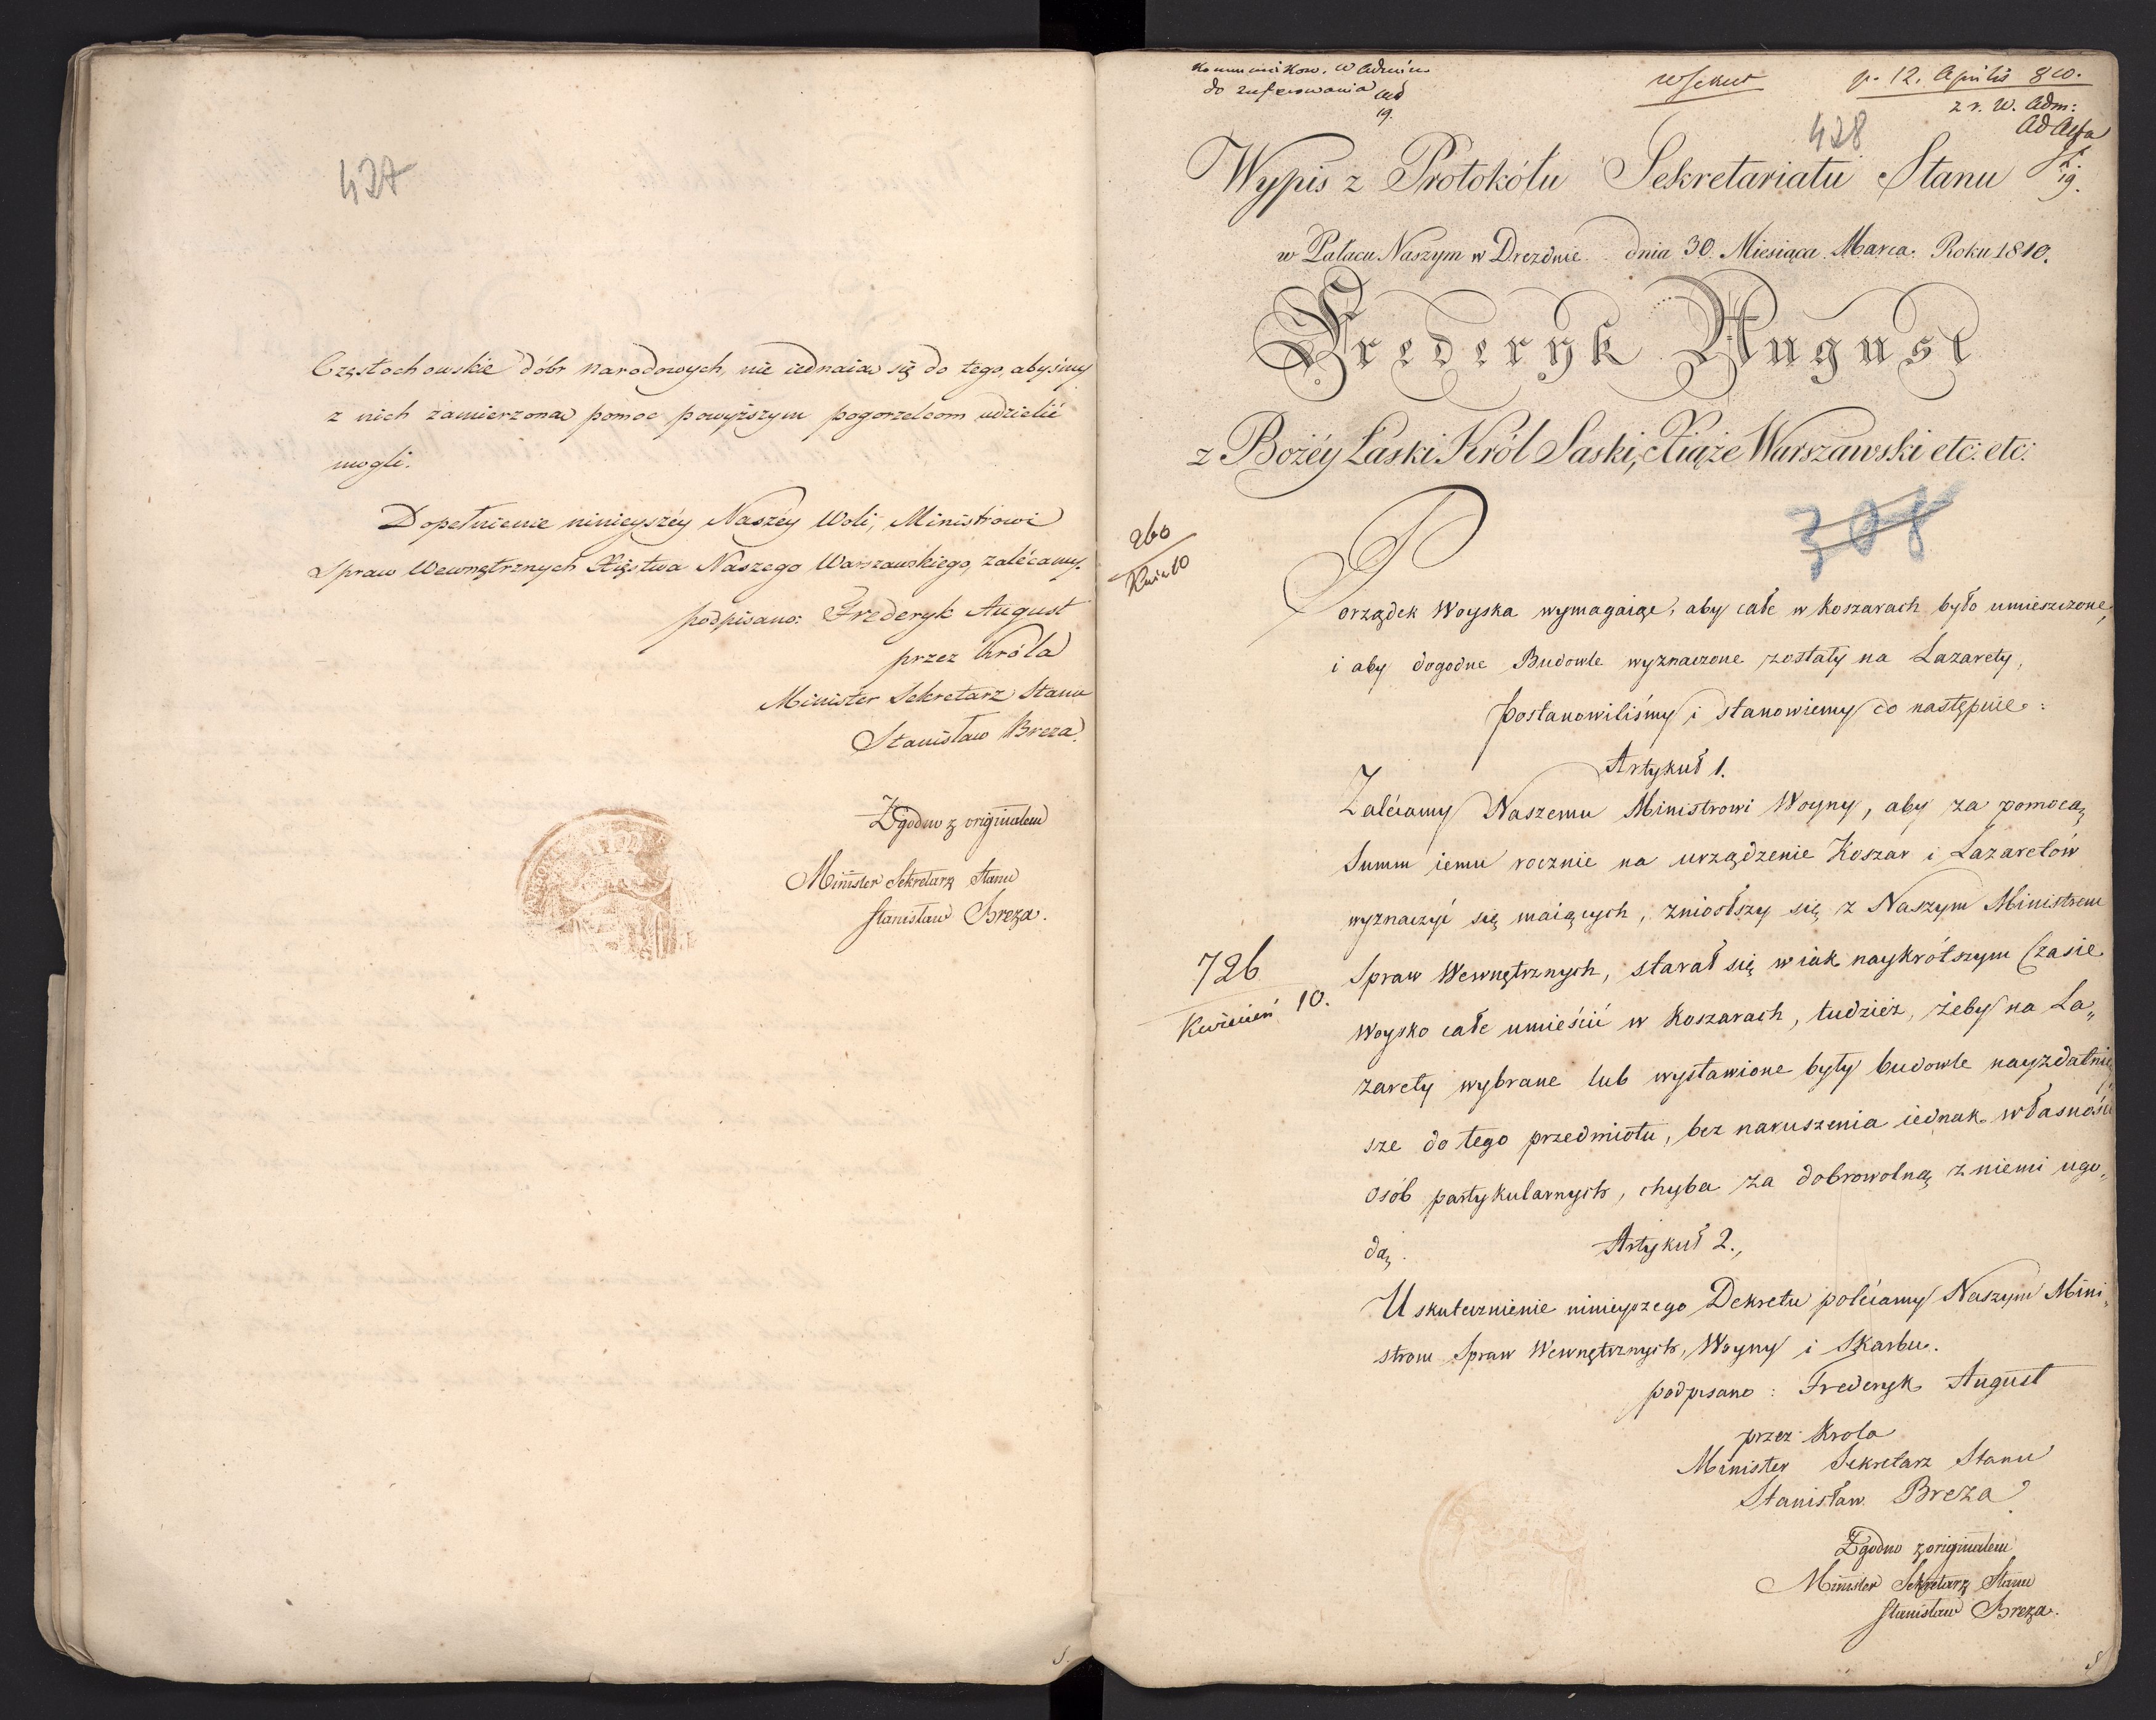 427
Częstochowskie dóbr narodowych, nie iednaią się do tego, abyśmy
z nich zamierzoną pomoc powyższym pogorzelcom udzielić
mogli.
Dopełnienie ninieyszéy Naszéy Woli, Ministrowi
Spraw Wewnętrznych Xięstwa Naszego Warszawskiego, zalécamy.
podpisano: Frederyk August
przez Króla
Minister Sekretarz Stanu
Stanisław Breza.
Zgodno z originałem
Minister Sekretarz Stanu
Stanisław Breza.
w Admin
do
19.
p. 12. Aprilis 810.
z r. W. Adm:
Ad Acta
19.
428
Wypis z Protokółu Sekretariatu Stanu
w Pałacu Naszym w Dreznie dnia 30. Miesiąca Marca. Roku 1810.
Frederyk August
z Bożéy Łaski Król Saski, Xiąże Warszawski etc: etc:
308
260
Kwie 10
Porządek Woyska wymagaiąc, aby całe w koszarach było umieszczone,
i aby dogodne Budowle wyznaczone zostały na Lazarety,
postanowiliśmy i stanowiemy co następuie:
Artykuł 1.
Zalécamy Naszemu Ministrowi Woyny, aby za pomocą
Summ iemu rocznie na urządzenie Koszar i Lazaretów
wyznaczyć się maiących, zniosłszy się z Naszym Ministrem
726
Kwiecień 10.
Spraw Wewnętrznych, starał się w iak naykrótszym Czasie
woysko całe umieścić w koszarach, tudzież, żeby na La„
zarety wybrane lub wystawione były budowle nayzdatniey„
sze do tego przedmiotu, bez naruszenia iednak własności
osób partykularnych, chyba za dobrowolną z niemi ugo„
dą.
Artykuł 2.
Uskutecznienie ninieyszego Dekretu polécamy Naszym Mini„
strom Spraw Wewnętrznych, Woyny i Skarbu.
podpisano: Frederyk August
przez Krola
Minister Sekretarz Stanu
Stanisław Breza
Zgodno z originałem
Minister Sekretarz Stanu
Stanisław Breza.